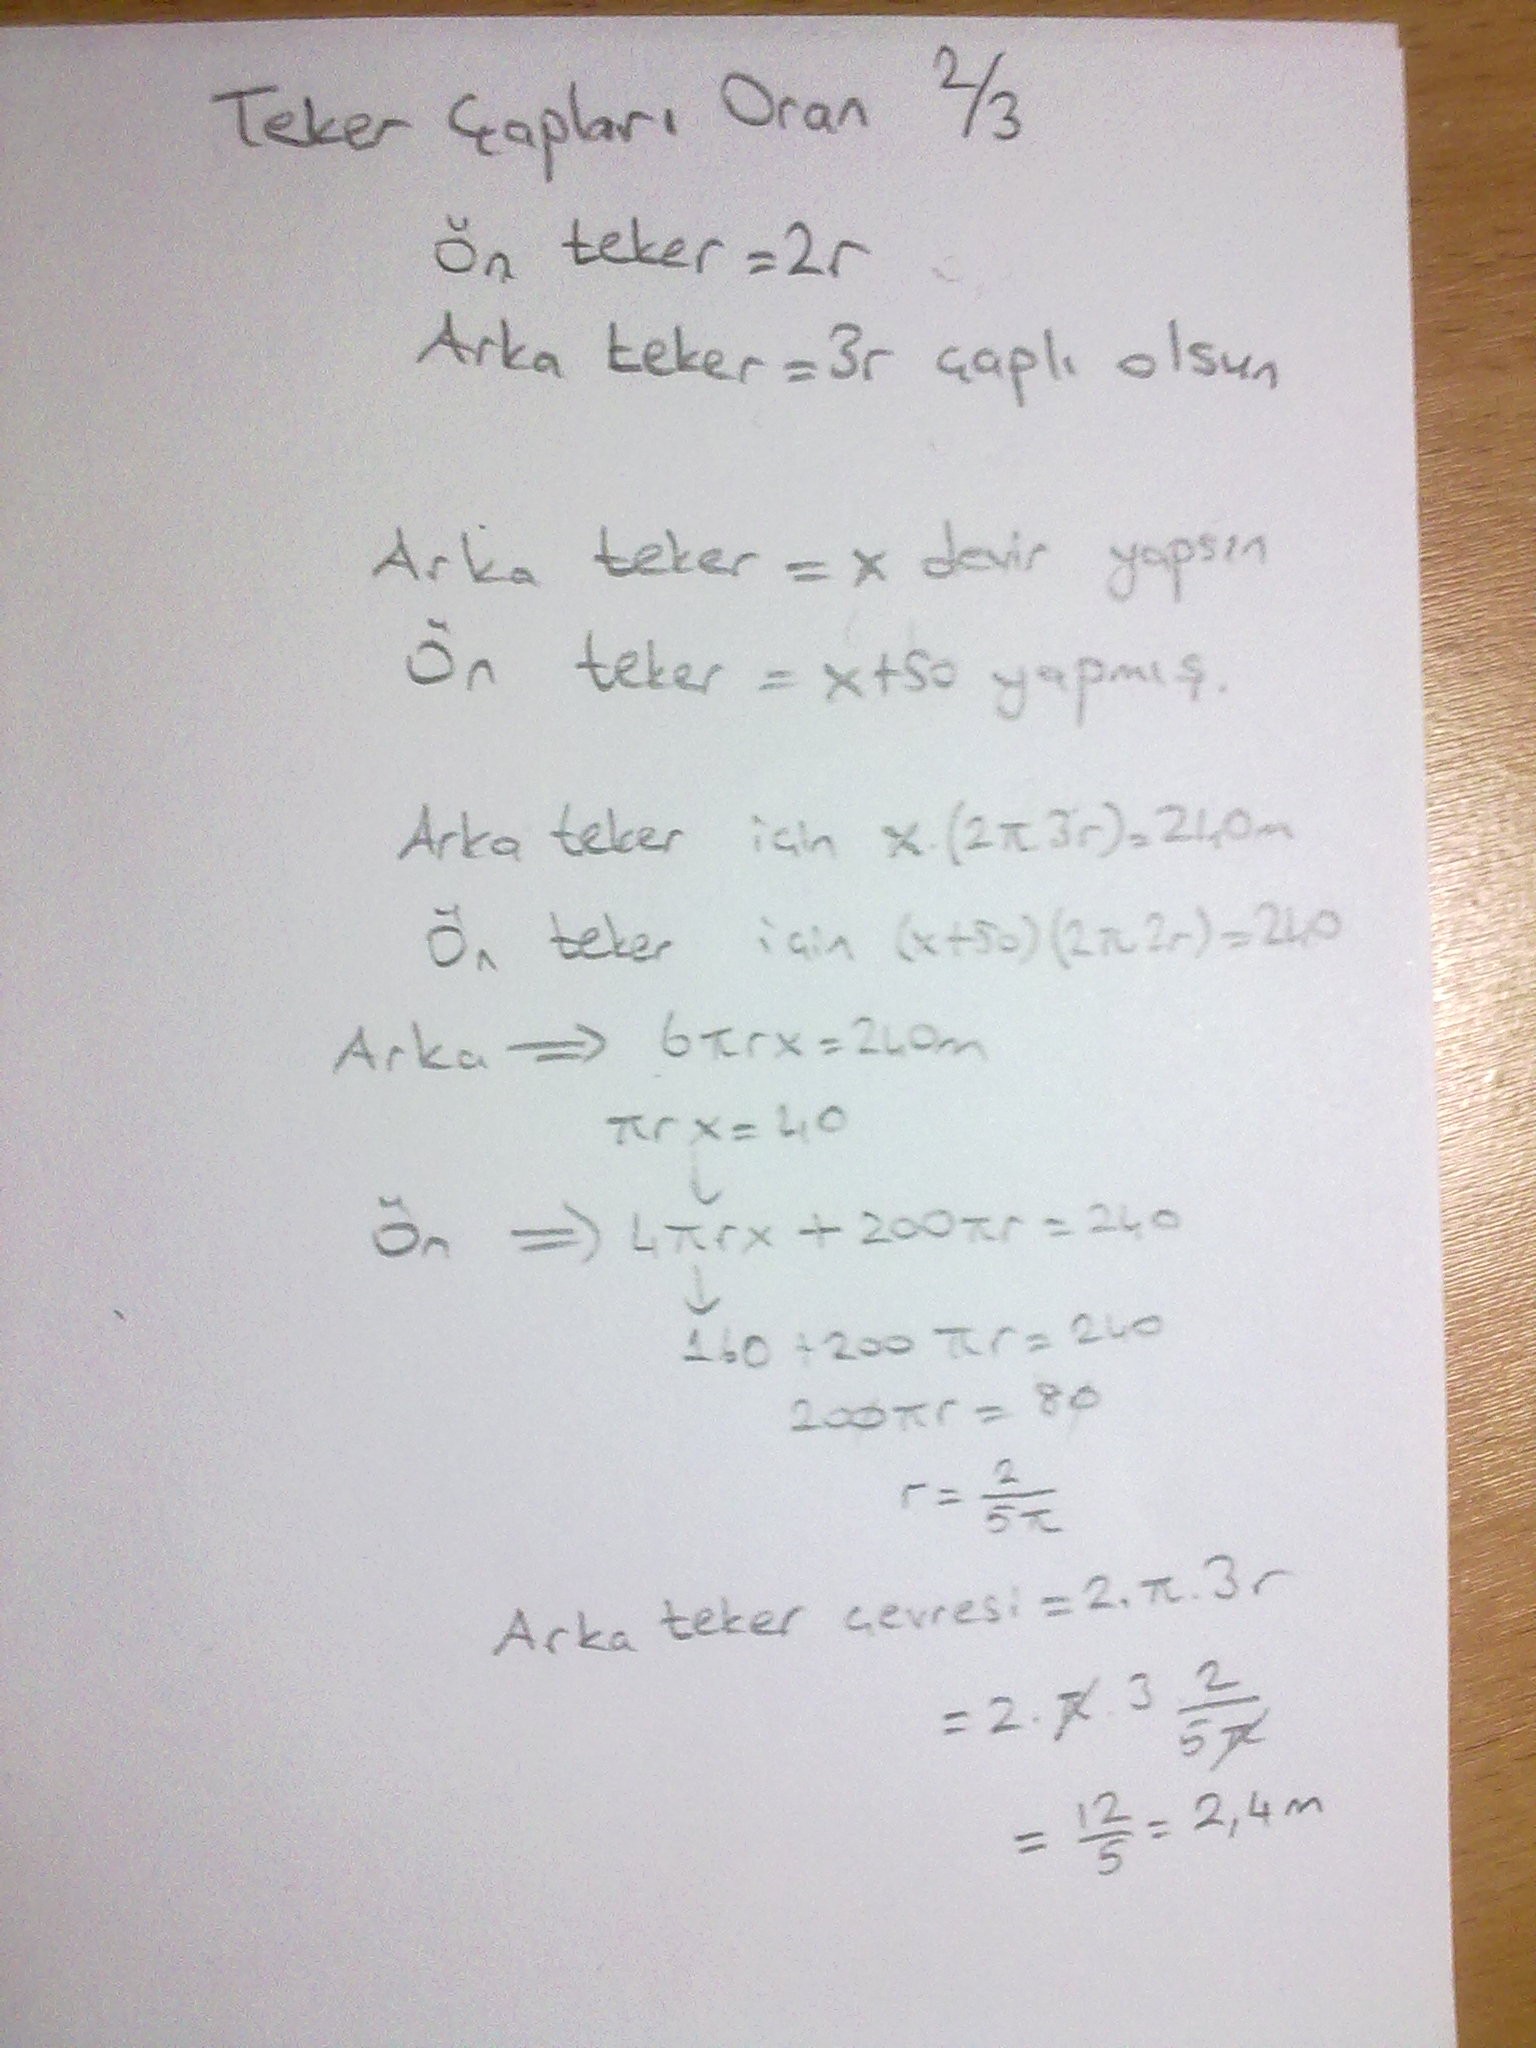 Teker Çapları Oran 2/3
Ön teker = 2r
Arka teker = 3r çaplı olsun
Arka teker = x devir yapsın
Ön teker = x+50 yapmış.
Arka teker için x.(2π3r)=240m
Ön teker için (x+50)(2π2r)=240
Arka ⇒ 6πrx=240m
πrx=40
↓
Ön ⇒ 4πrx + 200πr = 240
↓
160 + 200πr = 240
200πr = 80
r = 2/5π
Arka teker çevresi = 2.π.3r
= 2.π.3 2/5π
= 12/5 = 2,4m